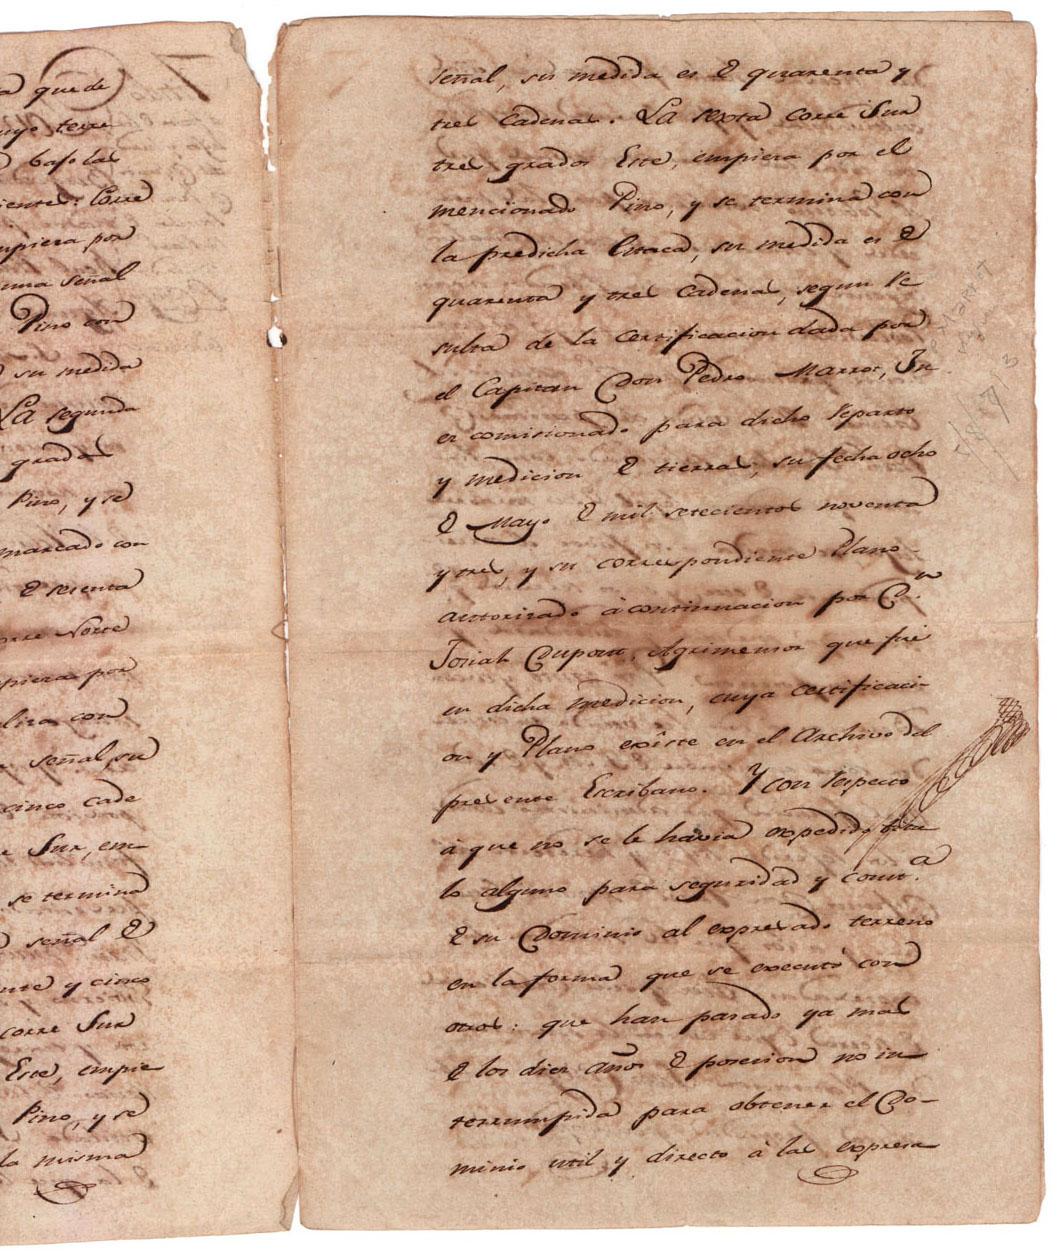 a que de
uyo terre
bajo las
iente: Corre
mpieza por
una señal
Pino con
su medida
La segunda
grados
Pino, y se
marcado con
D sesenta
orre Norte
mpieza por
aliza con
señal, su
cinco cade
e Sur, em
se termina
señal D
ente y cinco
corre Sur
Este, empie
Pino, y se
la misma
señal, su medida es D quarenta y
tres Cadenas. La sexta corre Sur
tres grados Este, empieza por el
mencionado Pino, y se termina con
la predicha Estaca, su medida es D
quarenta y tres Cadenas, segun Re
sulta de la Certificacion dada por
el Capitan Don Pedro Marrot, Ju
es comisionado para dicho Reparto
y medicion D tierras, su fecha ocho
D Mayo D mil setecientos noventa
y tres, y su correspondiente Plano
autorizado à continuacion por Dn
Josiah Dupont, Agrimensor que fue
en dicha medicion, cuya certificaci-
on y Plano exîste en el Archivo del
presente Escribano. Y con respecto
à que no se le havia expedido titu
lo alguno para seguridad y const.a
D su Dominio al expresado terreno
en la forma que se executó con
otros: que han pasado ya mas
D los diez años D posecion no in
terrumpida para obtener el Do-
minio util y directo à las expresa